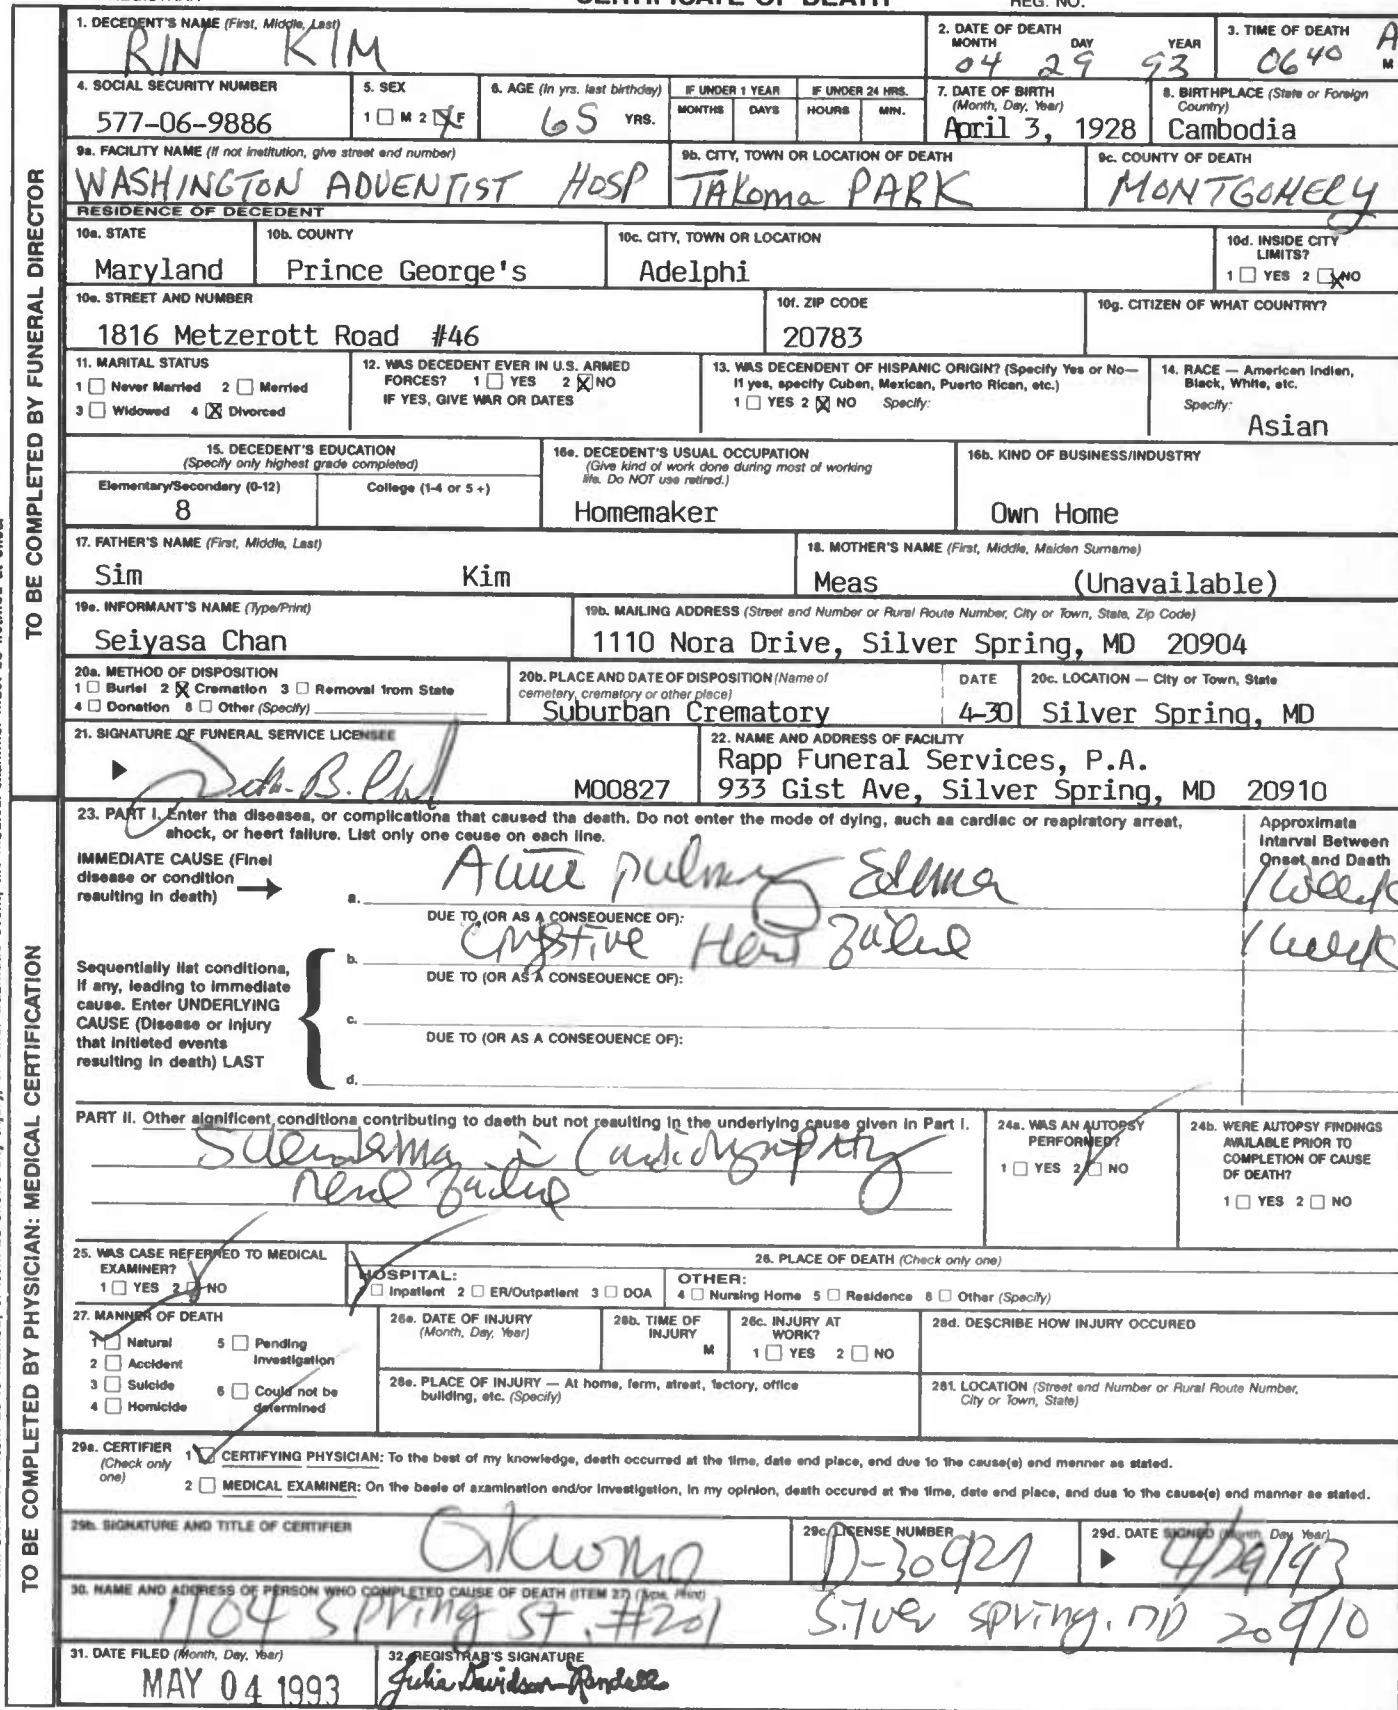 CERTIFICATE OF DEATH
REG. NO.
1. DECEDENT'S NAME (First, Middle, Last)
RIN KIM
2. DATE OF DEATH
MONTH DAY YEAR
04 29 93
3. TIME OF DEATH
0640 A M
4. SOCIAL SECURITY NUMBER
577-06-9886
5. SEX
1 M 2 F
6. AGE (In yrs. last birthday)
65 YRS.
IF UNDER 1 YEAR
MONTHS DAYS
IF UNDER 24 HRS.
HOURS MIN.
7. DATE OF BIRTH
(Month, Day, Year)
April 3, 1928
8. BIRTHPLACE (State or Foreign
Country)
Cambodia
9a. FACILITY NAME (If not institution, give street and number)
WASHINGTON ADVENTIST HOSP
9b. CITY, TOWN OR LOCATION OF DEATH
TAKoma PARK
9c. COUNTY OF DEATH
MONTGOMERY
RESIDENCE OF DECEDENT
10a. STATE
Maryland
10b. COUNTY
Prince George's
10c. CITY, TOWN OR LOCATION
Adelphi
10d. INSIDE CITY
LIMITS?
1 YES 2 NO
10e. STREET AND NUMBER
1816 Metzerott Road #46
10f. ZIP CODE
20783
10g. CITIZEN OF WHAT COUNTRY?
11. MARITAL STATUS
1 Never Married 2 Married
3 Widowed 4 Divorced
12. WAS DECEDENT EVER IN U.S. ARMED
FORCES? 1 YES 2 NO
IF YES, GIVE WAR OR DATES
13. WAS DECENDENT OF HISPANIC ORIGIN? (Specify Yes or No—
If yes, specify Cuban, Mexican, Puerto Rican, etc.)
1 YES 2 NO Specify:
14. RACE — American Indian,
Black, White, etc.
Specify:
Asian
15. DECEDENT'S EDUCATION
(Specify only highest grade completed)
Elementary/Secondary (0-12)
8
College (1-4 or 5+)
16a. DECEDENT'S USUAL OCCUPATION
(Give kind of work done during most of working
life. Do NOT use retired.)
Homemaker
16b. KIND OF BUSINESS/INDUSTRY
Own Home
17. FATHER'S NAME (First, Middle, Last)
Sim Kim
18. MOTHER'S NAME (First, Middle, Maiden Surname)
Meas (Unavailable)
19a. INFORMANT'S NAME (Type/Print)
Seiyasa Chan
19b. MAILING ADDRESS (Street and Number or Rural Route Number, City or Town, State, Zip Code)
1110 Nora Drive, Silver Spring, MD 20904
20a. METHOD OF DISPOSITION
1 Burial 2 Cremation 3 Removal from State
4 Donation 8 Other (Specify)
20b. PLACE AND DATE OF DISPOSITION (Name of
cemetery, crematory or other place)
Suburban Crematory
DATE
4-30
20c. LOCATION — City or Town, State
Silver Spring, MD
21. SIGNATURE OF FUNERAL SERVICE LICENSEE
M00827
22. NAME AND ADDRESS OF FACILITY
Rapp Funeral Services, P.A.
933 Gist Ave, Silver Spring, MD 20910
TO BE COMPLETED BY FUNERAL DIRECTOR
23. PART I. Enter the diseases, or complications that caused the death. Do not enter the mode of dying, such as cardiac or respiratory arrest,
shock, or heart failure. List only one cause on each line.
Approximate
Interval Between
Onset and Death
IMMEDIATE CAUSE (Final
disease or condition
resulting in death)
a. Acute pulmonary Edema 1 week
DUE TO (OR AS A CONSEQUENCE OF):
b. Congestive Heart Failure 1 week
DUE TO (OR AS A CONSEQUENCE OF):
c.
DUE TO (OR AS A CONSEQUENCE OF):
d.
Sequentially list conditions,
if any, leading to immediate
cause. Enter UNDERLYING
CAUSE (Disease or injury
that initiated events
resulting in death) LAST
PART II. Other significant conditions contributing to death but not resulting in the underlying cause given in Part I.
Scleroderma Cardiomyopathy
Renal Failure
24a. WAS AN AUTOPSY
PERFORMED?
1 YES 2 NO
24b. WERE AUTOPSY FINDINGS
AVAILABLE PRIOR TO
COMPLETION OF CAUSE
OF DEATH?
1 YES 2 NO
25. WAS CASE REFERRED TO MEDICAL
EXAMINER?
1 YES 2 NO
26. PLACE OF DEATH (Check only one)
HOSPITAL:
Inpatient 2 ER/Outpatient 3 DOA
OTHER:
4 Nursing Home 5 Residence 8 Other (Specify)
27. MANNER OF DEATH
1 Natural 5 Pending
Investigation
2 Accident
3 Suicide 6 Could not be
determined
4 Homicide
28a. DATE OF INJURY
(Month, Day, Year)
28b. TIME OF
INJURY
M
28c. INJURY AT
WORK?
1 YES 2 NO
28d. DESCRIBE HOW INJURY OCCURED
28e. PLACE OF INJURY — At home, farm, street, factory, office
building, etc. (Specify)
28f. LOCATION (Street and Number or Rural Route Number,
City or Town, State)
29a. CERTIFIER
(Check only
one)
1 CERTIFYING PHYSICIAN: To the best of my knowledge, death occurred at the time, date and place, and due to the cause(s) and manner as stated.
2 MEDICAL EXAMINER: On the basis of examination and/or investigation, in my opinion, death occured at the time, date and place, and due to the cause(s) and manner as stated.
29b. SIGNATURE AND TITLE OF CERTIFIER
29c. LICENSE NUMBER
D-30921
29d. DATE SIGNED (Month, Day, Year)
4/29/93
30. NAME AND ADDRESS OF PERSON WHO COMPLETED CAUSE OF DEATH (ITEM 27) (Type, Print)
1104 Spring ST. #201 Silver Spring. MD 20910
31. DATE FILED (Month, Day, Year)
MAY 04 1993
32. REGISTRAR'S SIGNATURE
Julia Davidson-Randall
TO BE COMPLETED BY PHYSICIAN: MEDICAL CERTIFICATION